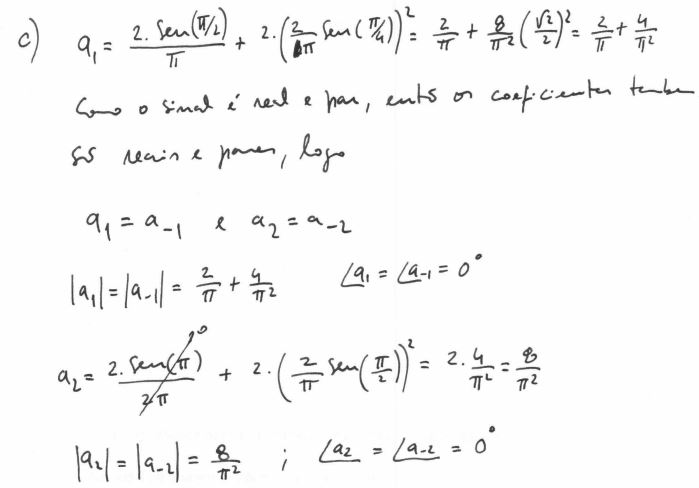 c) a₁ = 2.Sen(π/2)/π + 2.(2/π Sen(π/4))² = 2/π + 8/π² (√2/2)² = 2/π + 4/π²
Como o sinal é real e par, entº os coeficientes também
sº reais e pares, logo
a₁ = a₋₁ e a₂ = a₋₂
|a₁| = |a₋₁| = 2/π + 4/π² ∠a₁ = ∠a₋₁ = 0°
a₂ = 2.Sen(π)/2π ↗0 + 2.(2/π Sen(π/2))² = 2.4/π² = 8/π²
|a₂| = |a₋₂| = 8/π² ; ∠a₂ = ∠a₋₂ = 0°